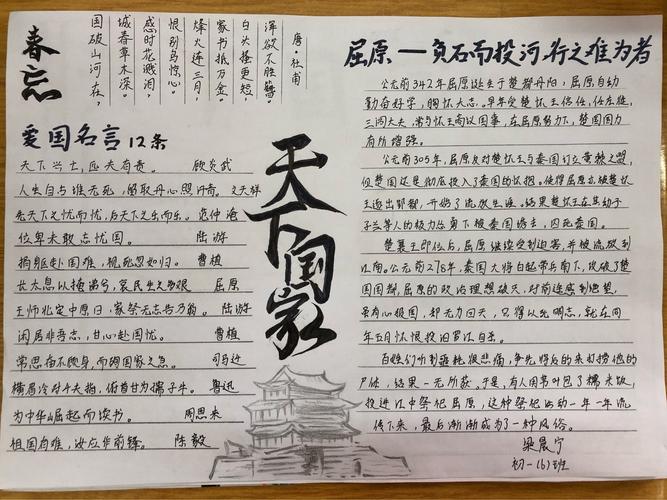 春忘
国破山河在，
城春草木深。
感时花溅泪，
恨别鸟惊心。
烽火连三月，
家书抵万金。
白头搔更短，
浑欲不胜簪。
唐·杜甫
爱国名言12条
天下兴亡，匹夫有责。 顾炎武
人生自古谁无死，留取丹心照汗青。文天祥
先天下之忧而忧，后天下之乐而乐。范仲淹
位卑未敢忘忧国。 陆游
捐躯赴国难，视死忽如归。 曹植
长太息以掩涕兮，哀民生之多艰 屈原
王师北定中原日，家祭无忘告乃翁。 陆游
闲居非吾志，甘心赴国忧。 曹植
常思奋不顾身，而殉国家之急。 司马迁
横眉冷对千夫指，俯首甘为孺子牛。 鲁迅
为中华崛起而读书。 周恩来
祖国有难，汝应作前锋。 陈毅
天下国家
屈原——负石而投河，行之难为者
公元前342年屈原诞生于楚郢丹阳，屈原自幼
勤奋好学，胸怀大志。早年受楚怀王信任，任左徒，
三闾大夫，常与怀王商议国事，在屈原努力下，楚国国力
有所增强。
公元前305年，屈原反对楚怀王与秦国订立黄棘之盟，
但楚国还是彻底投入了秦国的怀抱。使得屈原亦被楚怀
王逐出郢都，开始了流放生涯。结果楚怀王在其幼子
子兰等人的极力怂恿下被秦国诱去，囚死秦国。
楚襄王即位后，屈原继续受到迫害，并被流放到
江南。公元前278年，秦国大将白起带兵南下，攻破了楚
国国都，屈原的政治理想破灭，对前途感到绝望，
虽有心报国，却无力回天，只得以死明志，就在同
年五月怀恨投汨罗江自杀。
百姓们听到噩耗很悲痛，争先将后的来打捞他的
尸体，结果一无所获。于是，有人用苇叶包了糯米饭，
投进江中祭祀屈原，这种祭祀活动一年一年流
传下来，最后渐渐成为了一种风俗。
梁晨宁
初一(6)班